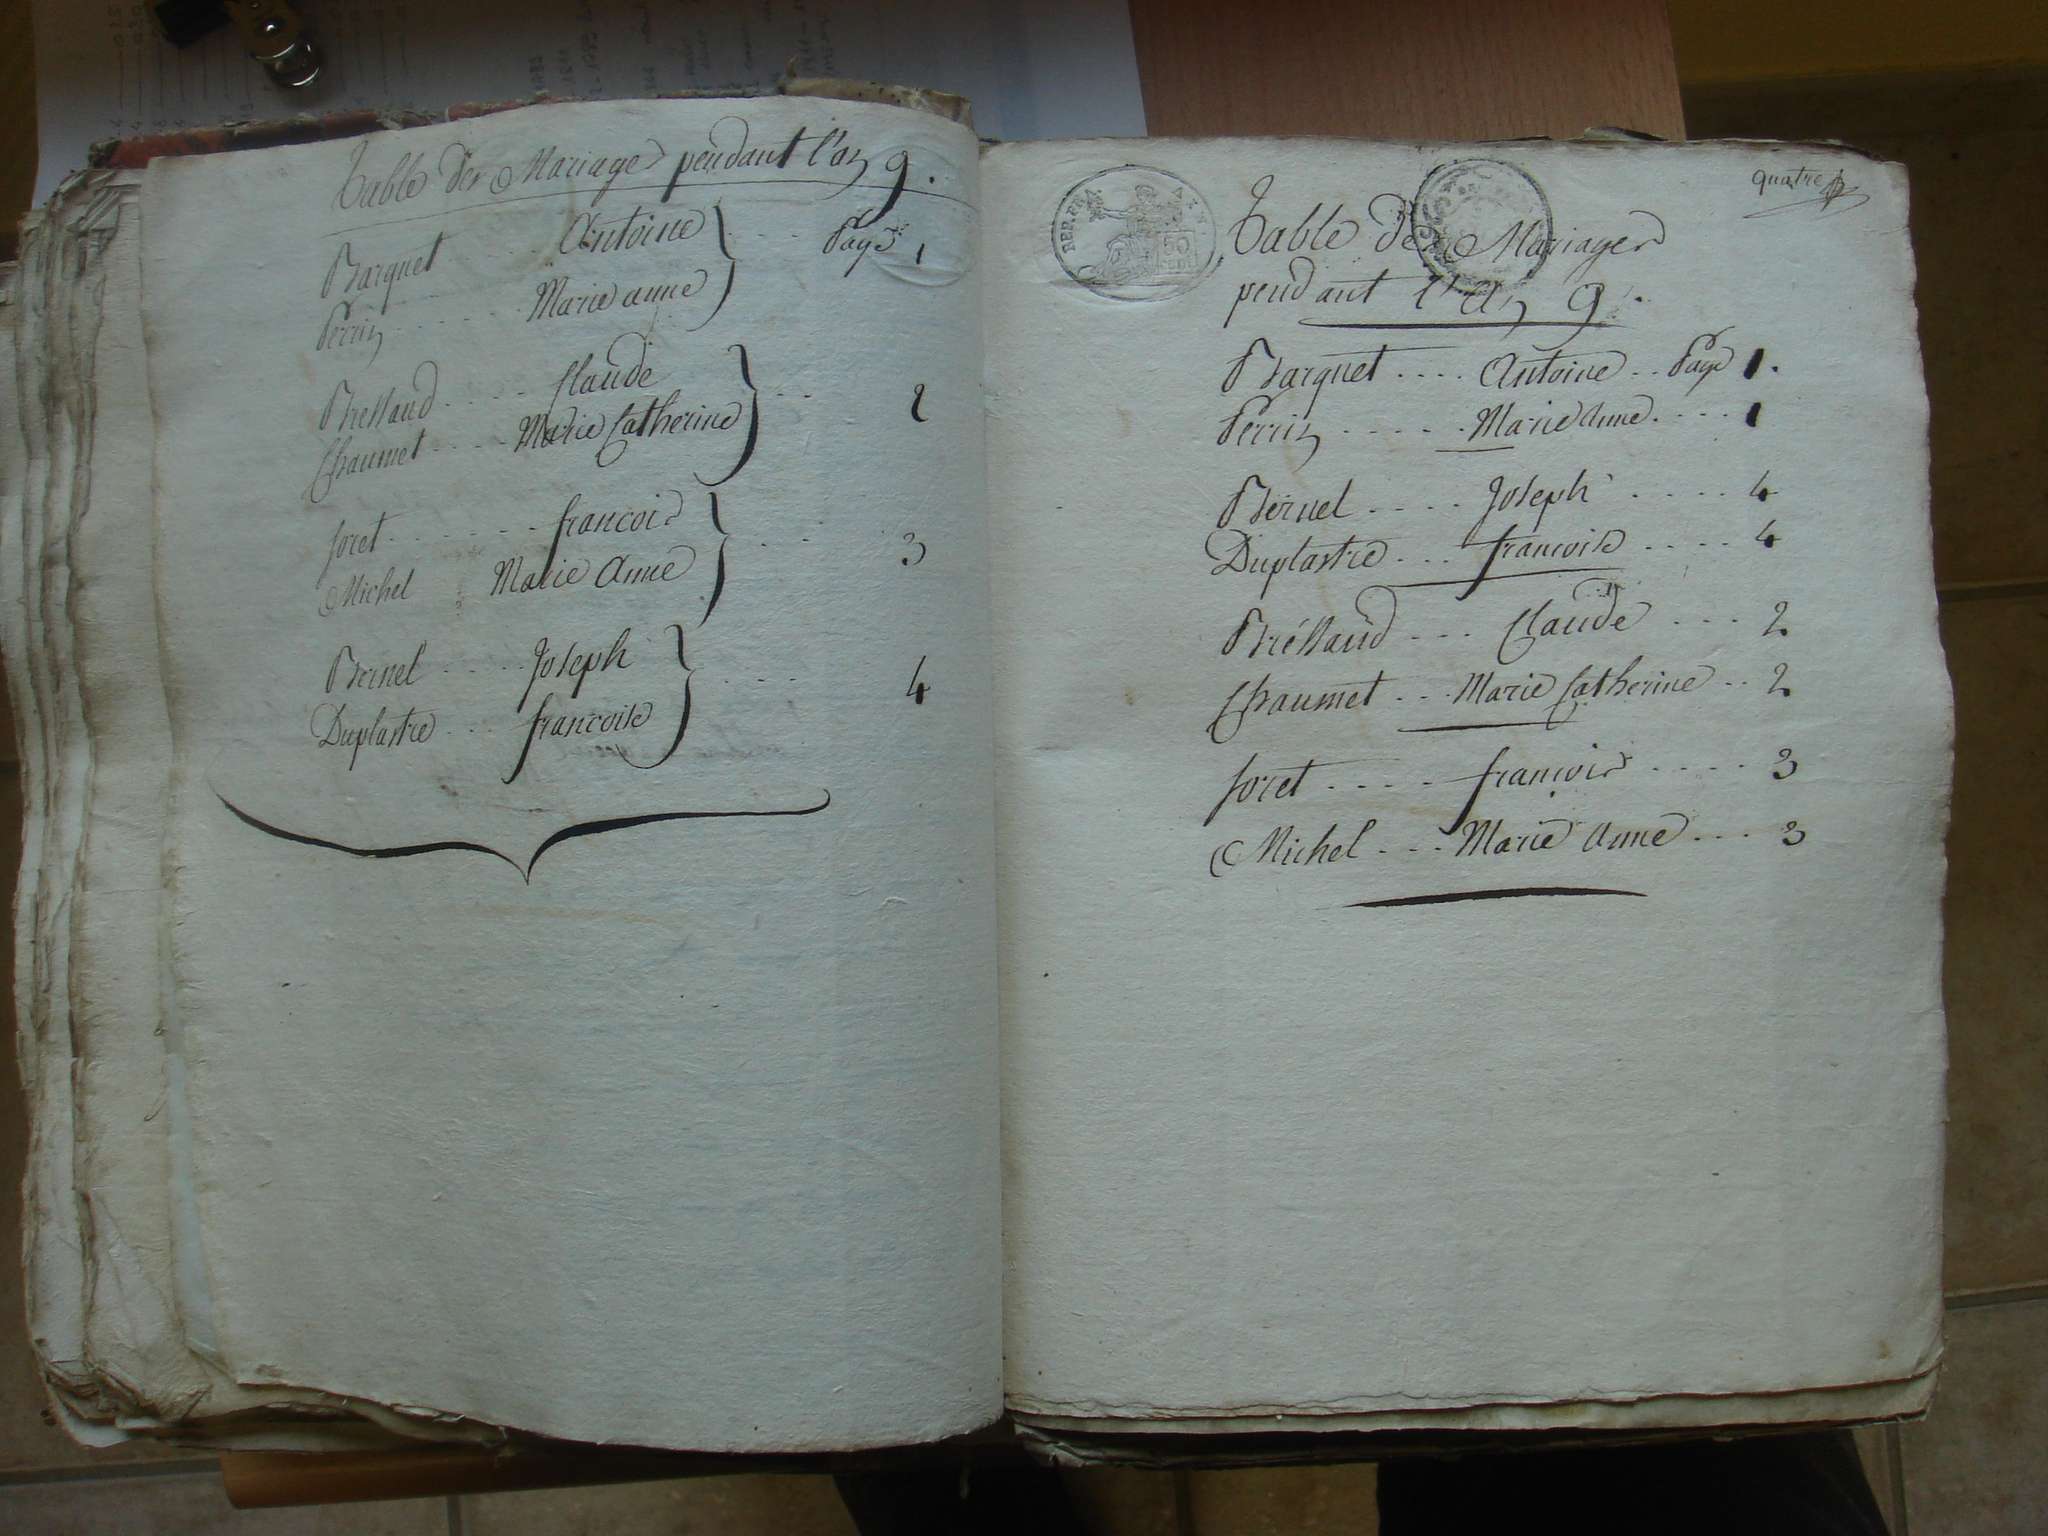 Table des Mariages pendant l'an 9.
Barquet ... Antoine } .... Page 1
Perrin ....... Marie anne
Bressaud ..... Claude } ... 2
Chaumet .... Marie Catherine
foret ........ francois } ... 3
Michel Marie Anne
Bernel ...... Joseph } .... 4
Duplastre ... francoise
quatre
REP. FRA
50
Table des Mariages
pendant l'an 9.
Barquet .... Antoine .. Page 1.
Perrin ...... Marie Anne .... 1
Bernel ..... Joseph ..... 4
Duplastre ... francoise .... 4
Bréssaud ... Claude .... 2
Chaumet ... Marie Catherine .. 2
foret ..... françois ..... 3
Michel .... Marie Anne ... 3